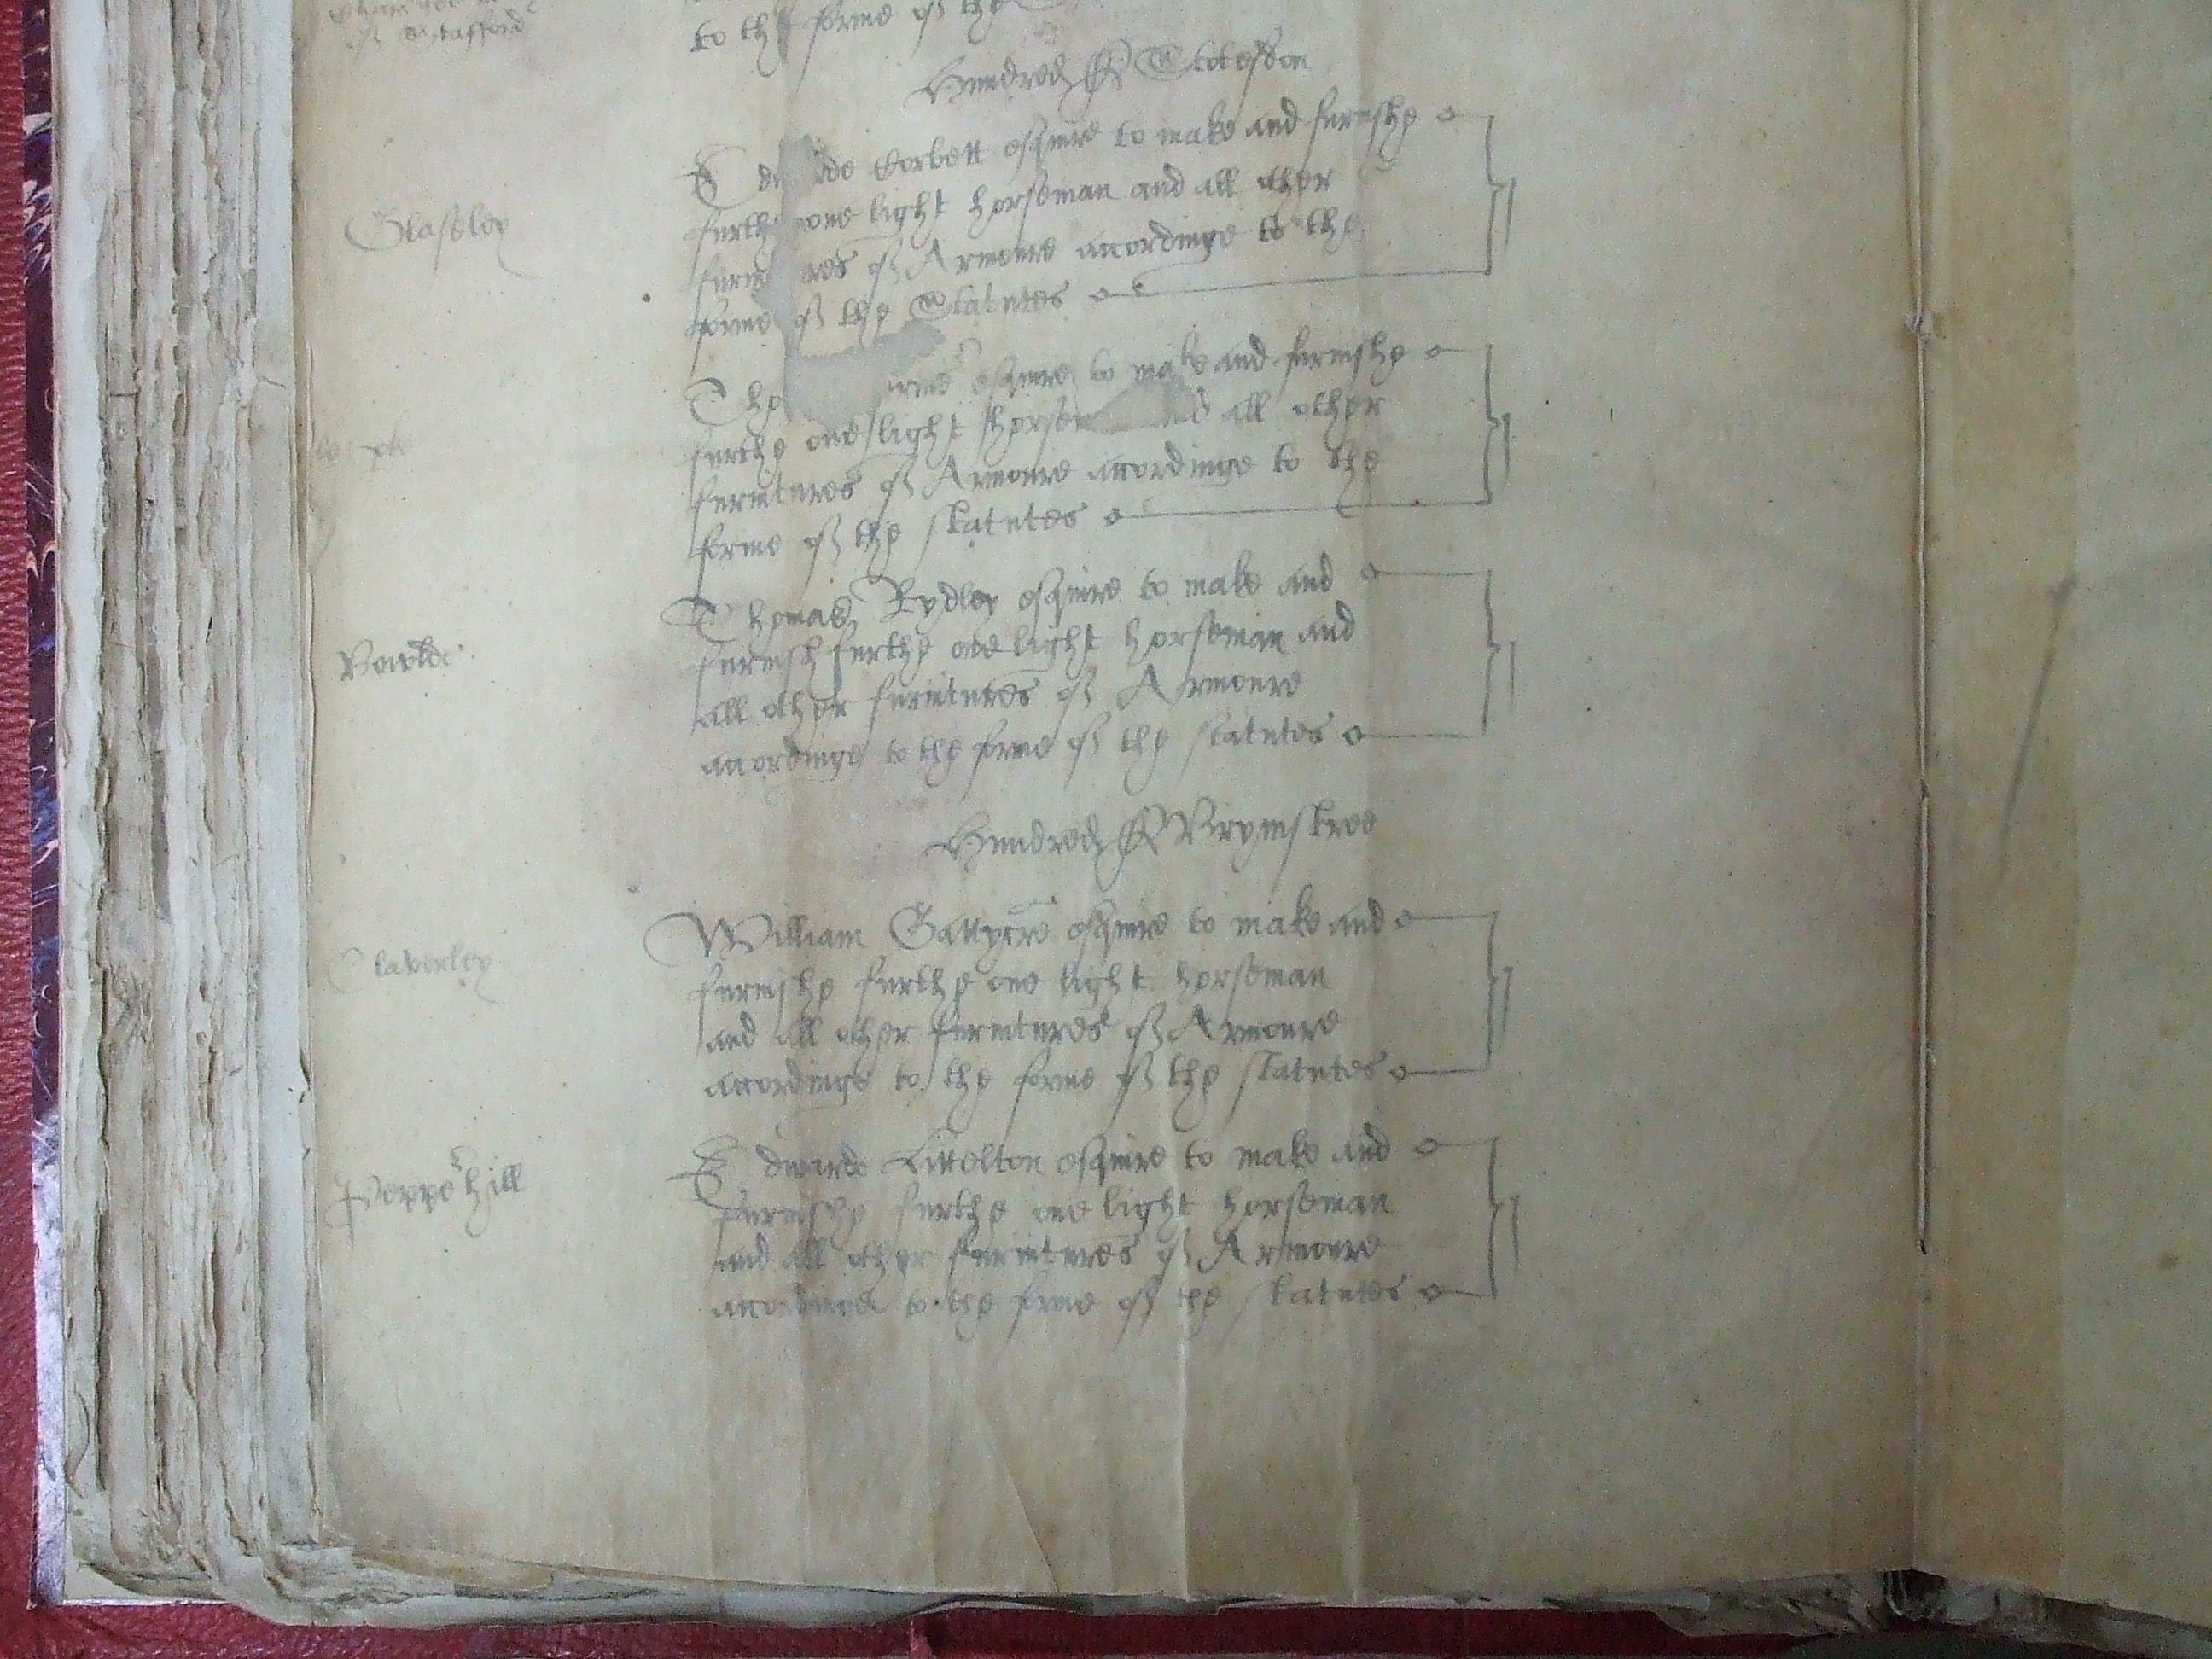 of Stafford
to the forme of the
Hundred de Stotesdon
Glaseley
Ed rde Corbett esquire to make and furnishe
furthe one light horseman and all other
furnitures of Armoure accordinge to the
forme of the Statutes
Tho esquire to make and furnishe
furthe one light horsem nd all other
furnitures of Armoure accordinge to the
forme of the statutes
Thomas Rydley esquire to make and
furnish furthe one light horseman and
all other furnitures of Armoure
accordinge to the forme of the statutes
Hundred de Brymstree
Claverley
William Gattycre esquire to make and
furnishe furthe one light horseman
and all other furnitures of Armoure
accordinge to the forme of the statutes
Pepp'hill
Edwarde Littelton esquire to make and
furnishe furthe one light horseman
and all other furnitures of Armoure
accordinge to the forme of the statutes